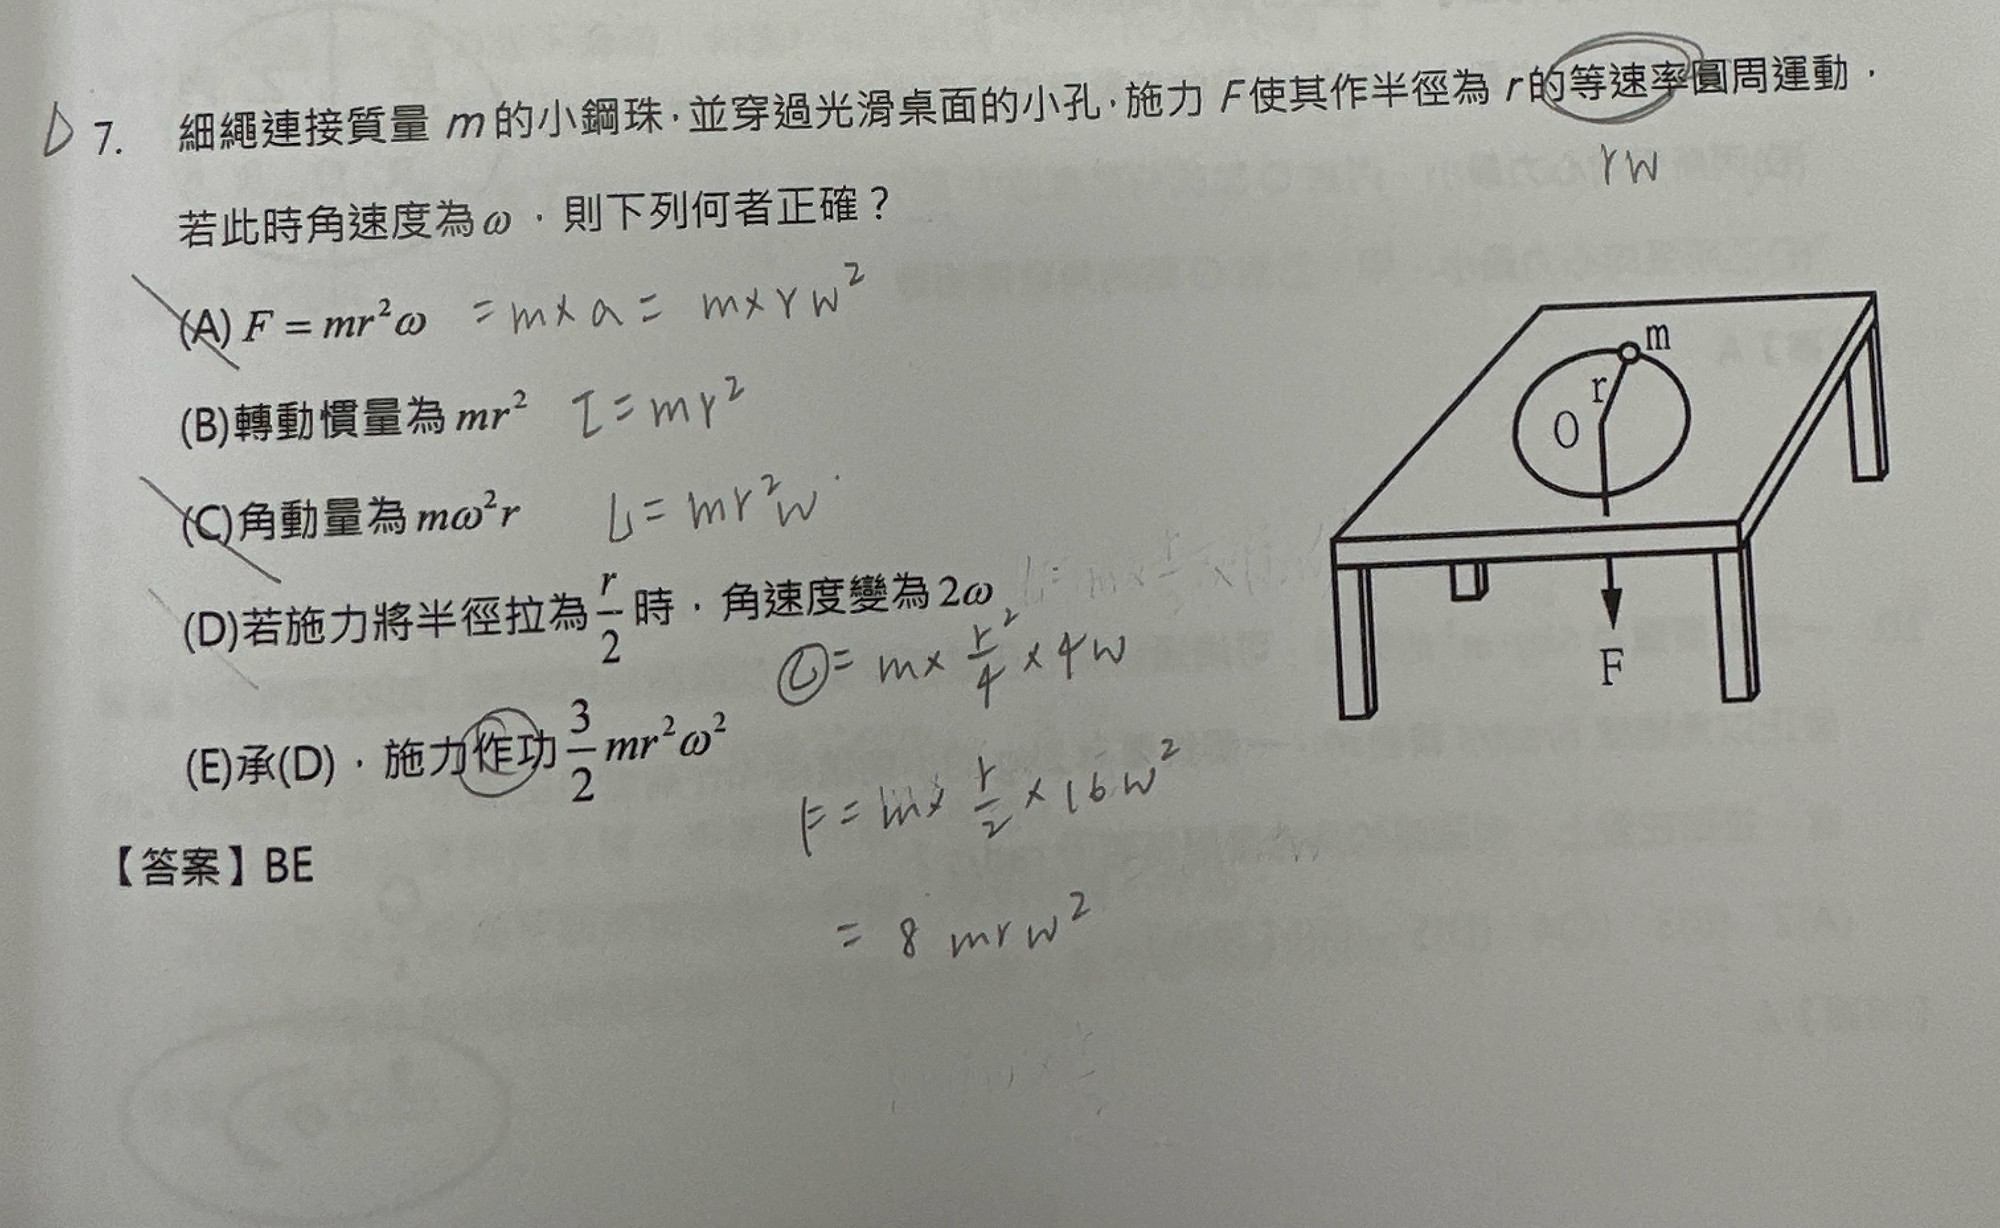 D 7. 細繩連接質量 m 的小鋼珠，並穿過光滑桌面的小孔，施力 F 使其作半徑為 r 的等速率圓周運動，
rw
若此時角速度為ω，則下列何者正確？
(A) F = mr²ω = m×a = m×rw²
(B)轉動慣量為 mr² I = mr²
(C)角動量為 mω²r L = mr²w
(D)若施力將半徑拉為 r/2 時，角速度變為 2ω
L = m× r²/4 ×4w
(E)承(D)，施力作功 3/2 mr²ω²
F = m× r/2 ×16w²
= 8 mrw²
【答案】BE
m
r
O
F